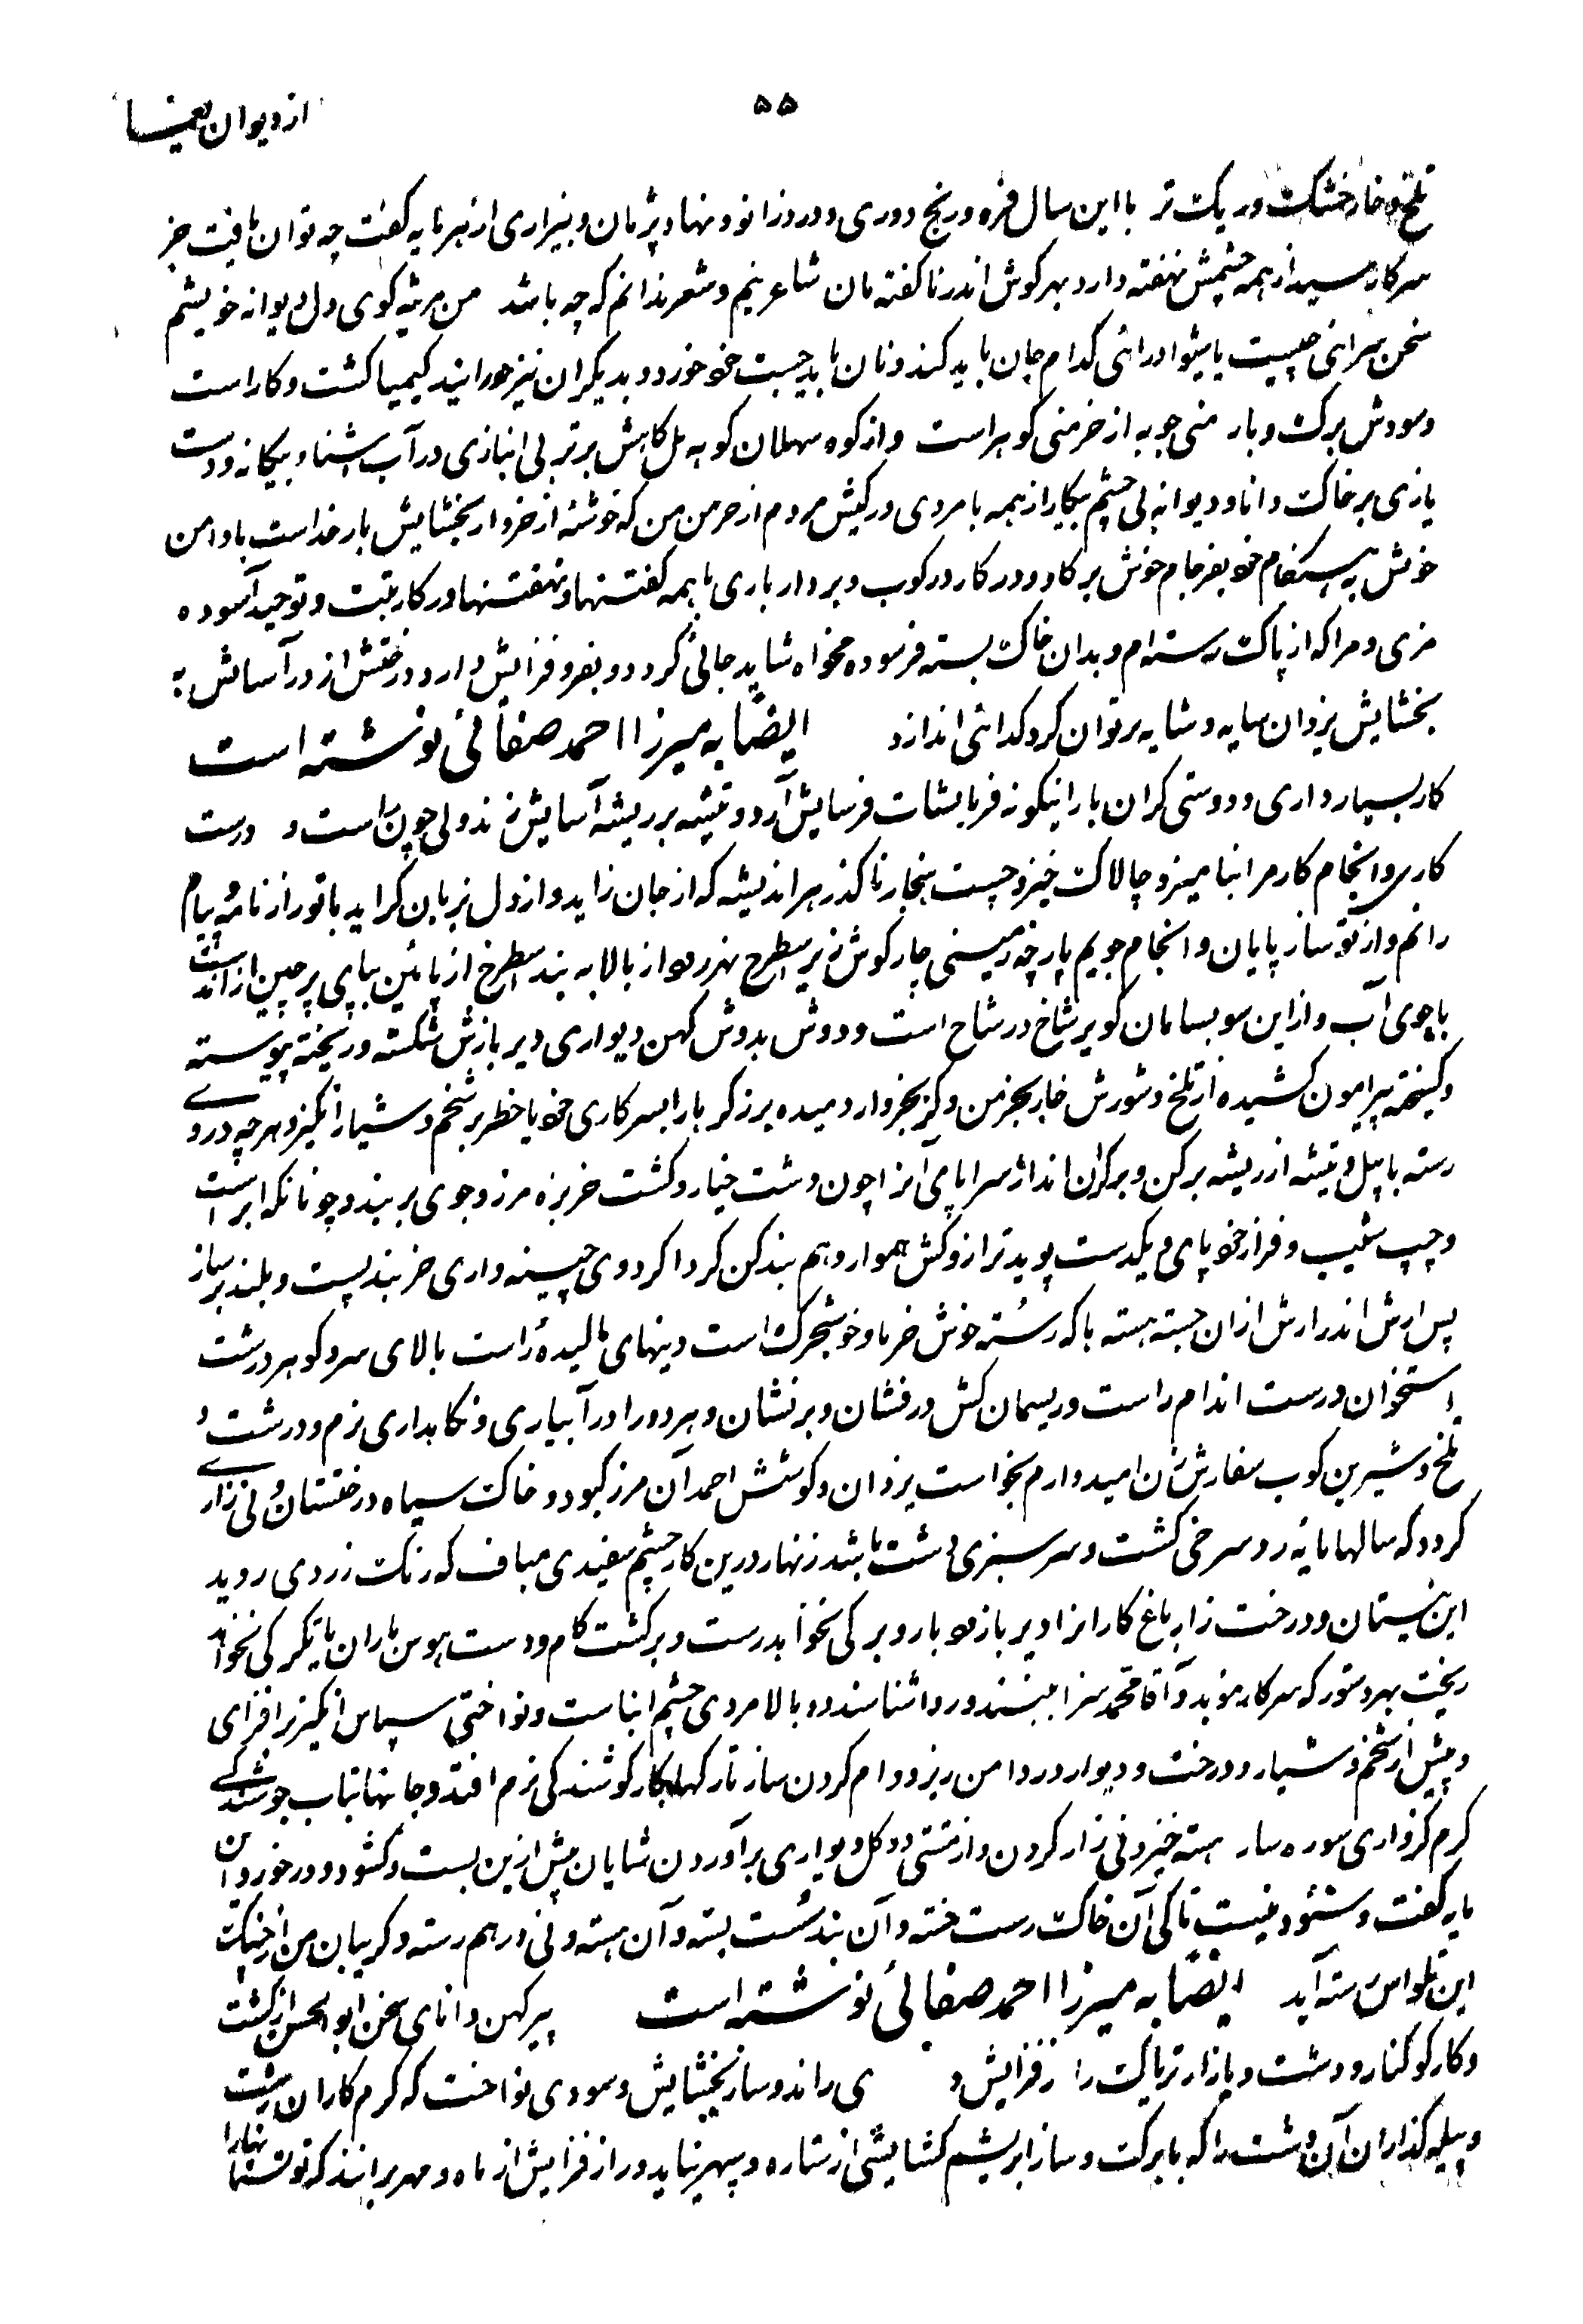 ۵۵
از دیوان یغما
تلخ و خار خشک و ریک تر با این سال فره و رنج دوری و درد زانو و نهاد پژمان و بیزاری از هر مایه کفت چه توان یافت جز
سرکار سید از همه چشمش نهفته دارد بهر کوش اندر نا کفته مان شاعر نیم و شعر ندانم که چه باشد من مرثیه کوی دل دیوانه خویشم
سخن سرائی چیست یا پیشوا درائی کدام جان باید کند و نان باید جست خو خورد و بدیکران نیز خورانید کیمیا کشت و کار است
و سودش برک و بار منی جو به از خرمنی کوهر است و از کوه سهلان کوبه مل کاهش برتر بی انبازی در آب آشنا و بیکانه و دست
یازی بر خاک دانا و دیوانه بی چشم بیکار از همه با مردی در کیش مردم از خرمن من که خوشه از خروار بخشایش بار خداست باد امن
خوش به هنکام خو بفرجام خوش بر کاو و در کار در کوب و بردار باری با همه کفتنها و نهفتنها در کار تبت و توحید آسوده
مزی و مرا که از پاک رسته ام و بدان خاک بسته فرسوده مخواه شاید جالی کردد و بفر و فزایش دارد درختش از در آسایش
بخشایش یزدان سایه و شایه بر توان کرد کدائی اندازد ایضا به میرزا احمد صفائی نوشته است
کار بسیار داری و دوستی کران بار اینکونه فرمایشات فرسایش آرد و تیشه بر ریشه آسایش زند ولی چون راست و درست
کاری و انجام کار مر انبا میز و چالاک خیز و چست هنجار ناکذر هر اندیشه که از جان زاید و از دل بزبان کراید با تو راز نامه پیام
رانم و از تو ساز پایان و انجام جویم پارچه زمینی چار کوش زیر سطرخ نهر دهو از بالا به بند سطرخ از پائین بپای پرچین از است
با جوی آب و از این سو بسامان کویر شاخ در شاخ است و دوش بدوش کهن دیواری دیر بازش شکسته و ریخته پیوسته
و کسیخته پیرامون کشیده از تلخ و شورش خار بخرمن و کز بخروار دمیده برزکر بار ابسرکاری خو یا خطر بر شخم و شیار انکیز و هر چه در وی
رسته با بیل و تیشه از ریشه برکن و بر کران انداز سراپای آنرا چون دشت خیار و کشت خربزه مرز و جوی بر بند و چونانکه از راست
و چپ شیب و فراز خو پای و یکدست پوید تراز و کش هموار و هم بند کن کرداکرد وی چینه واری خر بند پست و بلند بر ساز
پس ارش اندر ارش از آن جسته هسته باکه رسته خوش خرما و خوشجرک است و نیهای بالیده راست بالای سرو کوهر درشت
استخوان درست اندام راست و ریسمان کش درفشان و برنشان و هر دو را در آبیاری و نکاهداری نرم و درشت و
تلخ و شیرین کوب سفارش ران امیدوارم بخواست یزدان و کوشش احمد آن مرز کبود و خاک سیاه درختستان و نی زاری
کردد که سالها مایه رو سرخی کشت و سرسبزی دشت باشد زنهار درین کار چشم سفیدی مباف که رنک زردی روید
این نیستان و درخت زار باغ کار انرا دیر باز دهو بار و بر کی نخواهد رست و بر کشت کام و دست هوس باران با تکرکی نخواهد
ریخت بهر دستور که سرکار موبد و آقا محمد سزا بینند و روا شناسند دو بالا مردی چشم ابناست و نواختی سپاس انکیز بر افزای
و پیش از شخم و شیار و درخت و دیوار در دامن ریز و دام کردن ساز تار کهابکار کوشند کی نرم افتد و جانها بتاب جوشندکی
کرم کزواری سوره سار هسته خیز و نی زار کردن و از مشتی دو کل دیواری بر آوردن شایان بیش از ین بست و کشود و در خور و این
مایه کفت و شنود نیست تا کی آن خاک رست خسته و آن بند سست بسته و آن هسته و نی در هم رسته و کریبان من از چنک
این تلواس رسته آید ایضا به میرزا احمد صفائی نوشته است پیر کهن دانای سخن ابوالحسن از کشت
و کار کوکنار و دشت و بازار تریاک را ز فزایش و ی راند و ساز بخشایش و سودی نواخت که کرم کاران رشت
و پیله کذاران آن دشت را که با برک و ساز ابریشم کشایشی از ستاره و سپهر نیاید و راز فزایش از ماه و مهر برانند که تو تستانها را